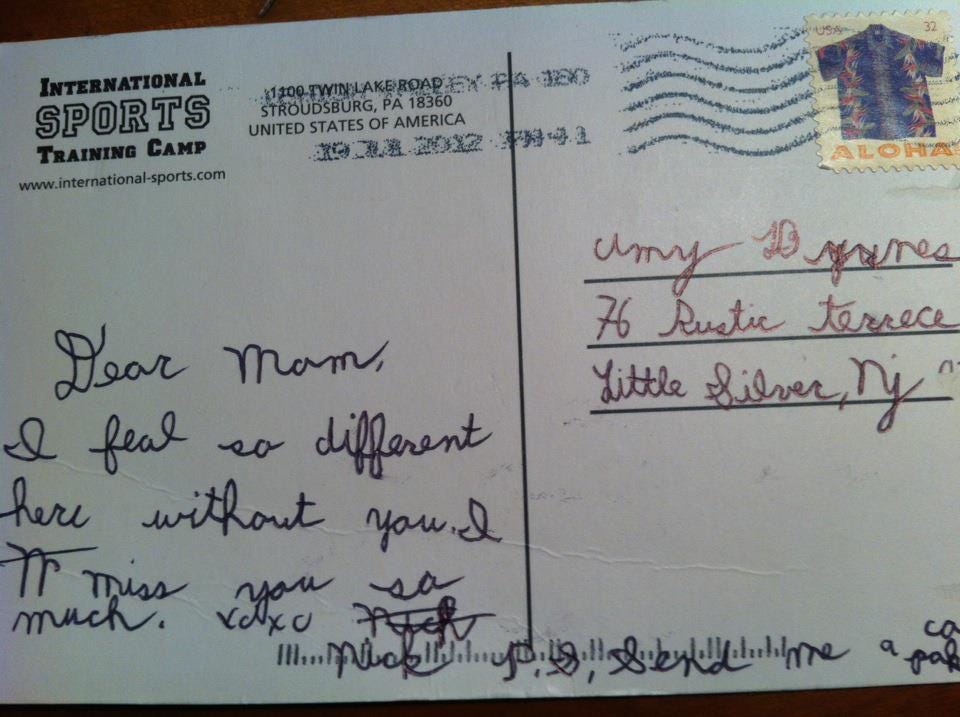 INTERNATIONAL
SPORTS
TRAINING CAMP
www.international-sports.com
1100 TWIN LAKE ROAD
STROUDSBURG, PA 18360
UNITED STATES OF AMERICA
PA 180
19 JUL 2012 PM 4 1
USA 32
ALOHA
Amy Byrnes
76 Rustic terrece
Little Silver, Nj
Dear Mom,
I feal so different
here without you. I
miss you so
much. xoxo Nick
Nick P.S, Send me a